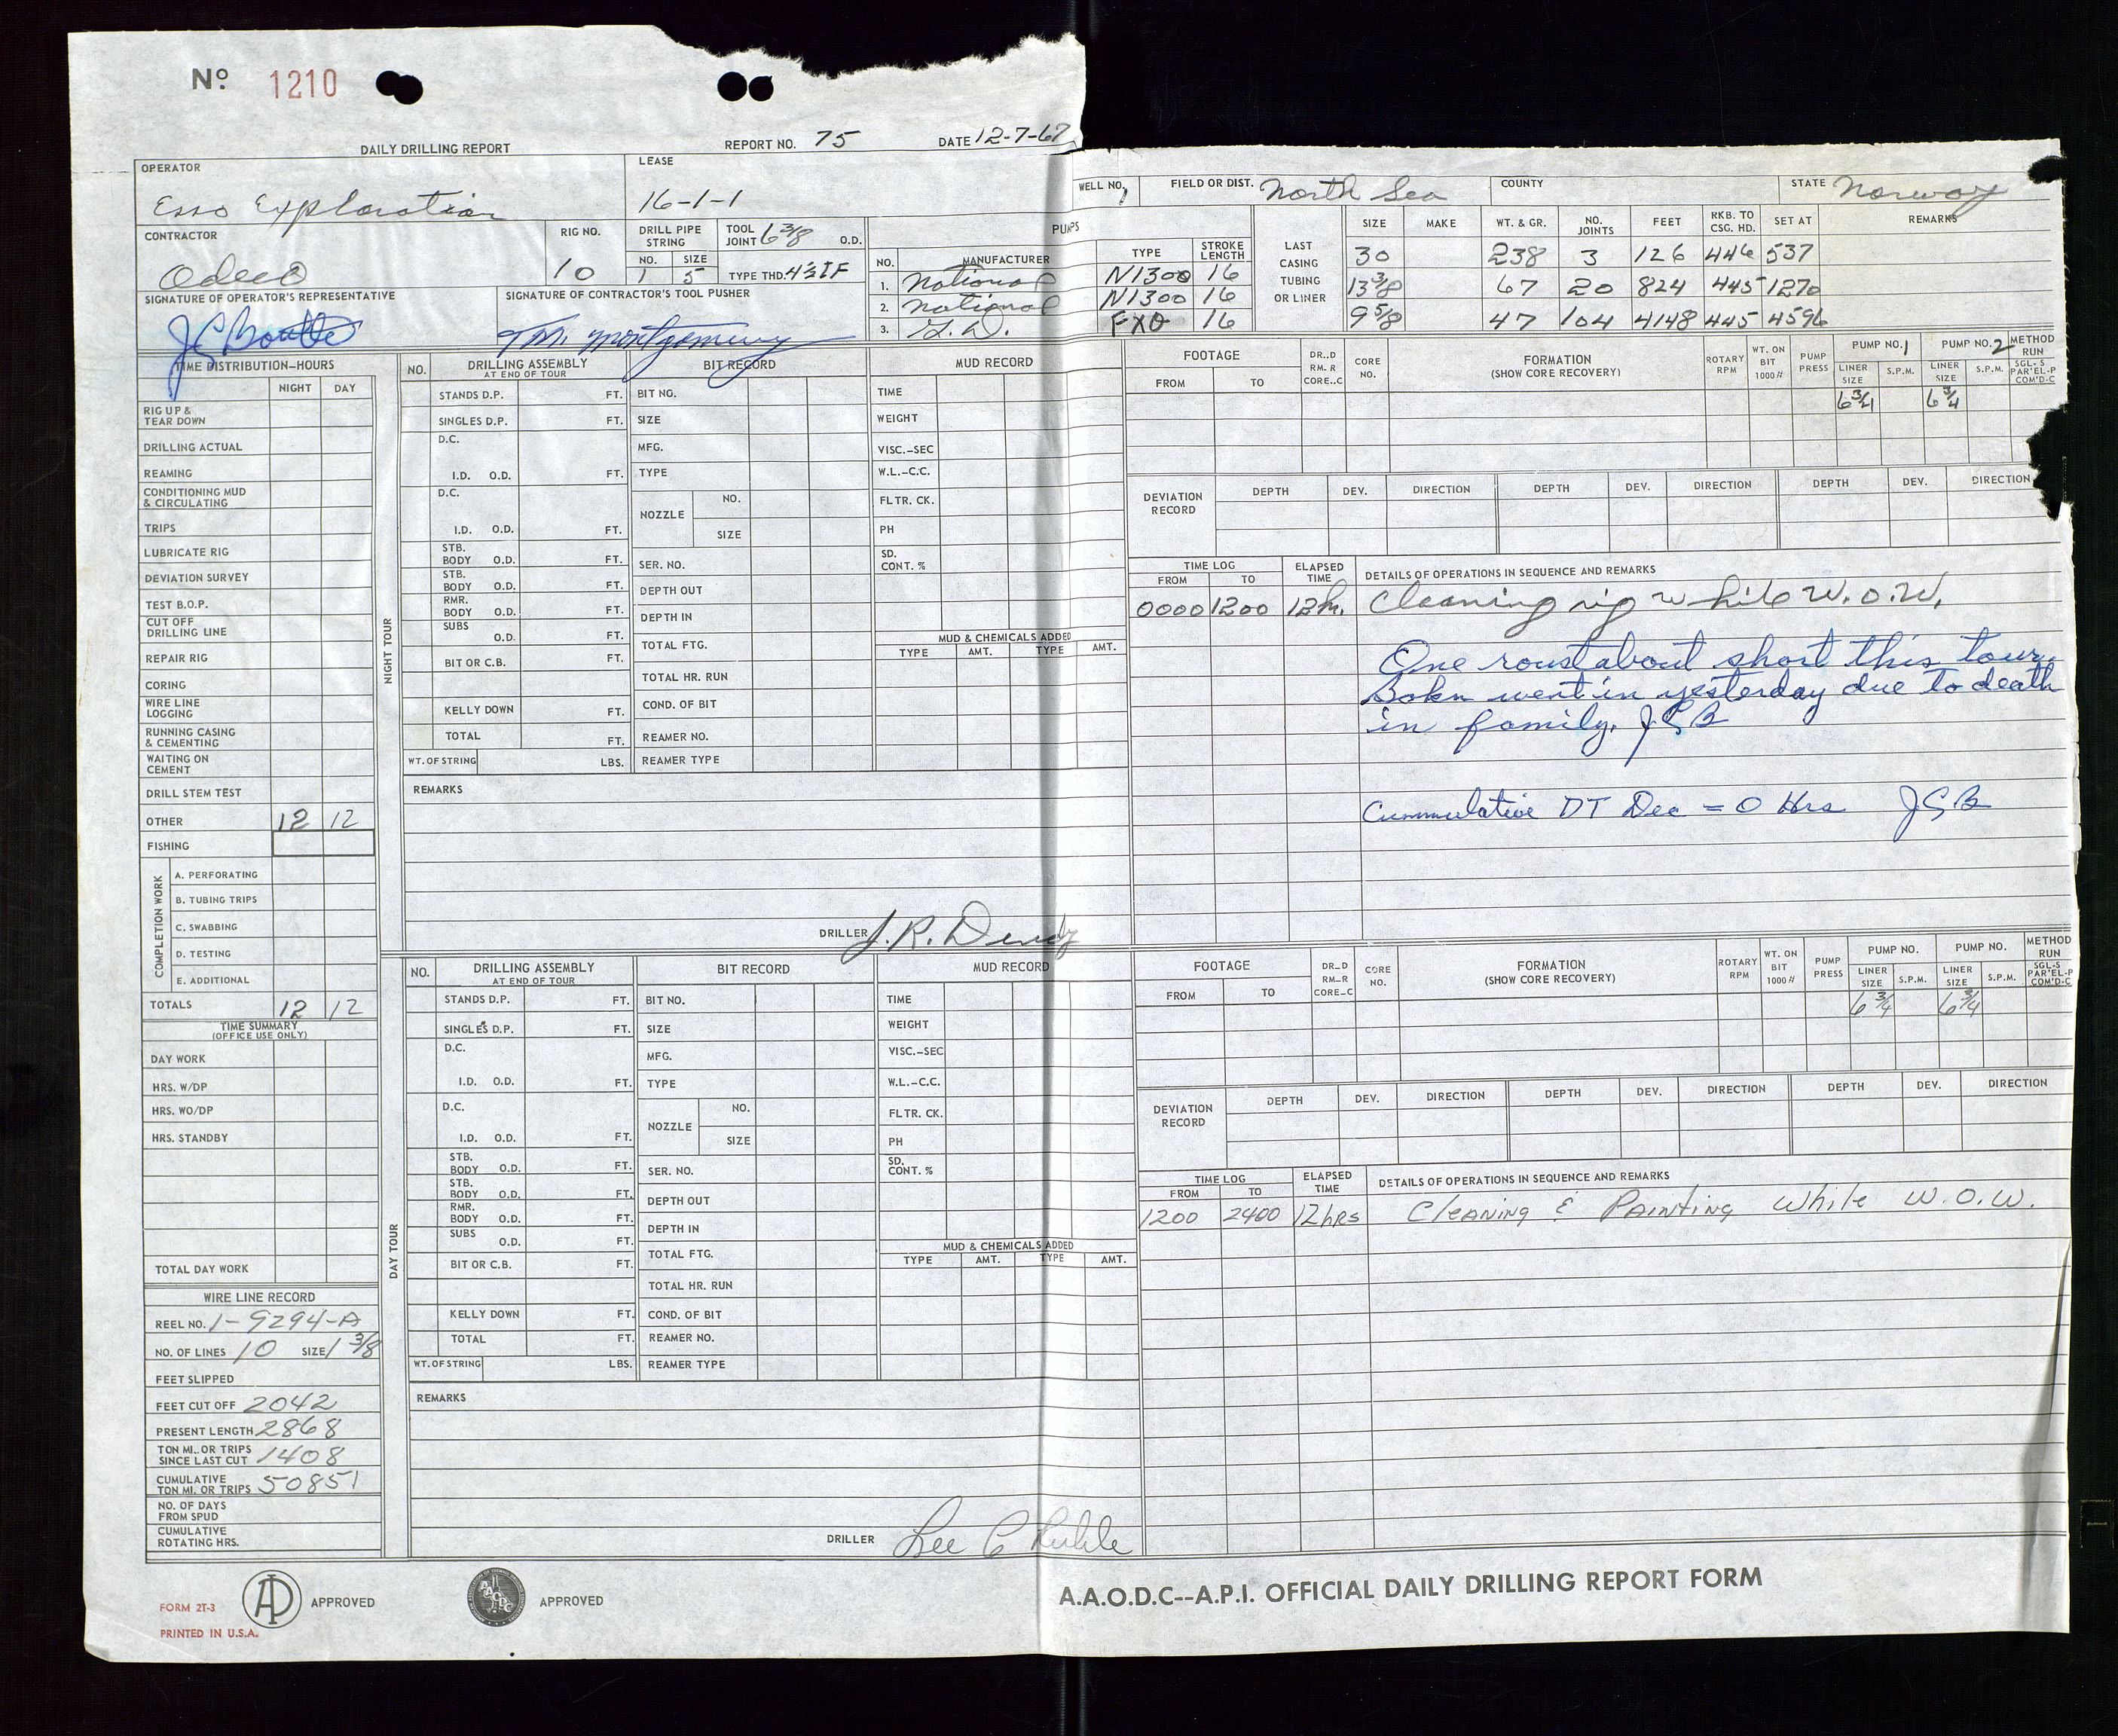 No 1210
DAILY DRILLING REPORT REPORT NO. 75 DATE 12-7-67
OPERATOR Esso Exploration LEASE 16-1-1 WELL NO. 1 FIELD OR DIST. North Sea COUNTY STATE Norway
CONTRACTOR Odeco RIG NO. 10
DRILL PIPE STRING NO. 1 SIZE 5 TOOL JOINT 6 3/8 O.D. TYPE THD. 4 1/2 IF
PUMPS
NO. MANUFACTURER TYPE STROKE LENGTH
1. National N1300 16
2. National N1300 16
3. G.D. FXO 16
LAST CASING TUBING OR LINER
SIZE MAKE WT. & GR. NO. JOINTS FEET RKB. TO CSG. HD. SET AT REMARKS
30 238 3 126 446 537
13 3/8 67 20 824 445 1270
9 5/8 47 104 4148 445 4596
SIGNATURE OF OPERATOR'S REPRESENTATIVE
SIGNATURE OF CONTRACTOR'S TOOL PUSHER T.M. Montgomery
TIME DISTRIBUTION-HOURS
NIGHT DAY
RIG UP & TEAR DOWN
DRILLING ACTUAL
REAMING
CONDITIONING MUD & CIRCULATING
TRIPS
LUBRICATE RIG
DEVIATION SURVEY
TEST B.O.P.
CUT OFF DRILLING LINE
REPAIR RIG
CORING
WIRE LINE LOGGING
RUNNING CASING & CEMENTING
WAITING ON CEMENT
DRILL STEM TEST
OTHER 12 12
FISHING
COMPLETION WORK
A. PERFORATING
B. TUBING TRIPS
C. SWABBING
D. TESTING
E. ADDITIONAL
TOTALS 12 12
TIME SUMMARY
(OFFICE USE ONLY)
DAY WORK
HRS. W/DP
HRS. WO/DP
HRS. STANDBY
TOTAL DAY WORK
WIRE LINE RECORD
REEL NO. 1-9294-A
NO. OF LINES 10 SIZE 1 3/8
FEET SLIPPED
FEET CUT OFF 2042
PRESENT LENGTH 2868
TON MI. OR TRIPS SINCE LAST CUT 1408
CUMULATIVE TON MI. OR TRIPS 50851
NO. OF DAYS FROM SPUD
CUMULATIVE ROTATING HRS.
NIGHT TOUR
NO. DRILLING ASSEMBLY AT END OF TOUR
STANDS D.P. FT.
SINGLES D.P. FT.
D.C.
I.D. O.D. FT.
D.C.
I.D. O.D. FT.
STB. BODY O.D. FT.
STB. BODY O.D. FT.
RMR. BODY O.D. FT.
SUBS O.D. FT.
BIT OR C.B. FT.
KELLY DOWN FT.
TOTAL FT.
WT. OF STRING LBS.
BIT RECORD
BIT NO.
SIZE
MFG.
TYPE
NOZZLE NO.
SIZE
SER. NO.
DEPTH OUT
DEPTH IN
TOTAL FTG.
TOTAL HR. RUN
COND. OF BIT
REAMER NO.
REAMER TYPE
MUD RECORD
TIME
WEIGHT
VISC.-SEC
W.L.-C.C.
FLTR. CK.
PH
SD. CONT. %
MUD & CHEMICALS ADDED
TYPE AMT. TYPE AMT.
REMARKS
DRILLER J.R. Dendy
FOOTAGE FROM TO DR..D RM.-R CORE..C CORE NO. FORMATION (SHOW CORE RECOVERY) ROTARY RPM WT. ON BIT 1000 # PUMP PRESS PUMP NO. 1 LINER SIZE S.P.M. PUMP NO. 2 LINER SIZE S.P.M. METHOD RUN SGL-S PAR'EL-P COM'D-C
6 3/4 6 3/4
DEVIATION RECORD DEPTH DEV. DIRECTION DEPTH DEV. DIRECTION DEPTH DEV. DIRECTION
TIME LOG FROM TO ELAPSED TIME DETAILS OF OPERATIONS IN SEQUENCE AND REMARKS
0000 1200 12 hr. Cleaning rig while W.O.W.
One roustabout short this tour.
Bokn went in yesterday due to death
in family. JGB
Cummulative DT Dec = 0 Hrs JGB
DAY TOUR
NO. DRILLING ASSEMBLY AT END OF TOUR
STANDS D.P. FT.
SINGLES D.P. FT.
D.C.
I.D. O.D. FT.
D.C.
I.D. O.D. FT.
STB. BODY O.D. FT.
STB. BODY O.D. FT.
RMR. BODY O.D. FT.
SUBS O.D. FT.
BIT OR C.B. FT.
KELLY DOWN FT.
TOTAL FT.
WT. OF STRING LBS.
BIT RECORD
BIT NO.
SIZE
MFG.
TYPE
NOZZLE NO.
SIZE
SER. NO.
DEPTH OUT
DEPTH IN
TOTAL FTG.
TOTAL HR. RUN
COND. OF BIT
REAMER NO.
REAMER TYPE
MUD RECORD
TIME
WEIGHT
VISC.-SEC
W.L.-C.C.
FLTR. CK.
PH
SD. CONT. %
MUD & CHEMICALS ADDED
TYPE AMT. TYPE AMT.
REMARKS
DRILLER Lee C
FOOTAGE FROM TO DR_D RM_R CORE_C CORE NO. FORMATION (SHOW CORE RECOVERY) ROTARY RPM WT. ON BIT 1000 # PUMP PRESS PUMP NO. LINER SIZE S.P.M. PUMP NO. LINER SIZE S.P.M. METHOD RUN SGL-S PAR'EL-P COM'D-C
6 3/4 6 3/4
DEVIATION RECORD DEPTH DEV. DIRECTION DEPTH DEV. DIRECTION DEPTH DEV. DIRECTION
TIME LOG FROM TO ELAPSED TIME DETAILS OF OPERATIONS IN SEQUENCE AND REMARKS
1200 2400 12 hrs Cleaning & Painting While W.O.W.
FORM 2T-3
PRINTED IN U.S.A.
APPROVED
AAODC
APPROVED
A.A.O.D.C--A.P.I. OFFICIAL DAILY DRILLING REPORT FORM